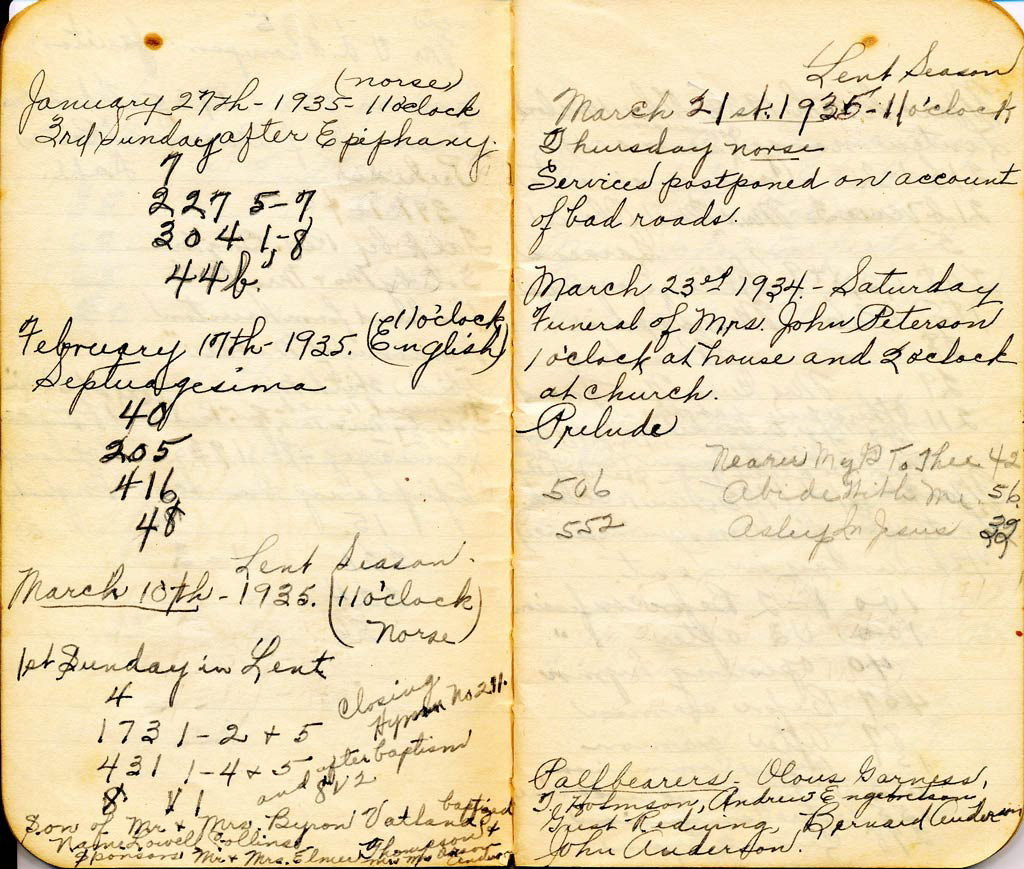 (norse)
January 27th - 1935 - 11 o'clock
3rd Sunday after Epiphany.
7
227 5-7
304 1-8
44b.
February 17th - 1935. (11 o'clock English)
Septuagesima
40
205
416
48
Lent Season.
March 10th - 1935. (11 o'clock
Norse)
1st Sunday in Lent
4
173 1-2 + 5
Closing Hymn No 211.
431 1-4 + 5 after baptism
8 V 1 and 8 V 2
Son of Mr. & Mrs. Byron Vatland baptized
Name Lowell Collins
Sponsors Mr. & Mrs. Elmer Thompson &
Lent Season
March 21st. 1935 - 11 o'clock
Thursday norse
Services postponed on account
of bad roads.
March 23rd 1934. - Saturday
Funeral of Mrs. John Peterson
1 o'clock at house and 2 o'clock
at church.
Prelude
Nearer My G To Thee 42
506 Abide With Me. 56
552 Asleep In Jesus 39
Pallbearers - Olous Garness,
T. Holmson, Andrew Engebretson,
Gust Rediving, Bernard Anderson
John Anderson.